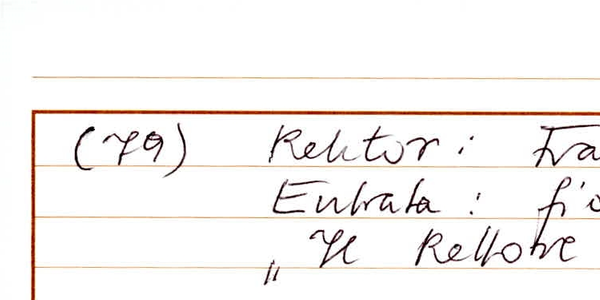 (79) Rektor: Fra
Entrata: fio
„Il Rettore